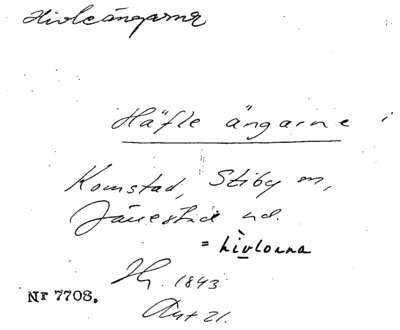 Hivleängarna
Häfle ängarne i
Komstad, Stiby m,
Järrestad hd.
= hivlorna
Hg. 1843
Akt 21.
Nr 7708.